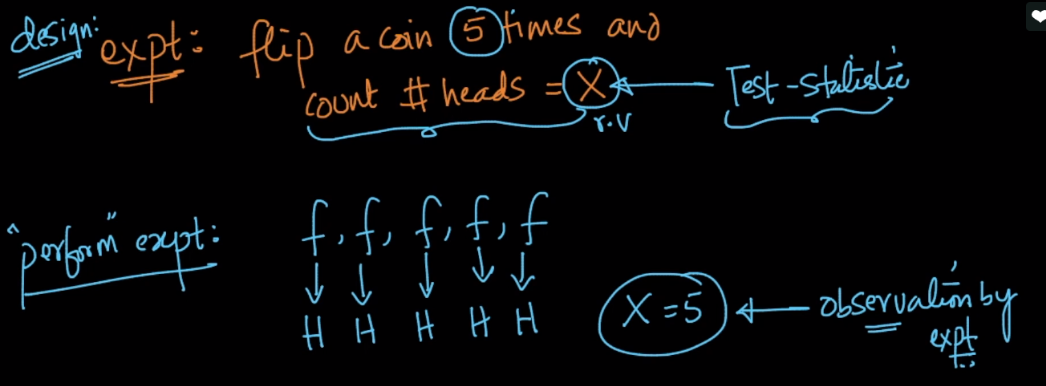 design: expt: flip a coin 5 times and
count # heads = X ← Test-statistic
r.v
"perform" expt: f, f, f, f, f
↓ ↓ ↓ ↓ ↓
H H H H H X = 5 ← observation by
expt